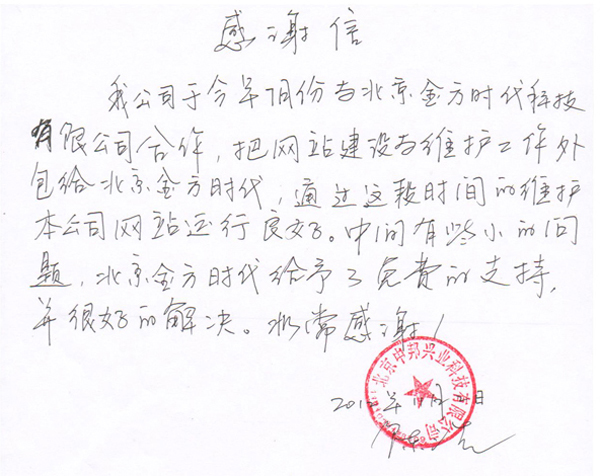 感谢信
我公司于今年7月份与北京金方时代科技
有限公司合作，把网站建设与维护工作外
包给北京金方时代，通过这段时间的维护
本公司网站运行良好。中间有些小的问
题，北京金方时代给予了免费的支持，
并很好的解决。非常感谢！
北京中邦兴业科技有限公司
年 月 日